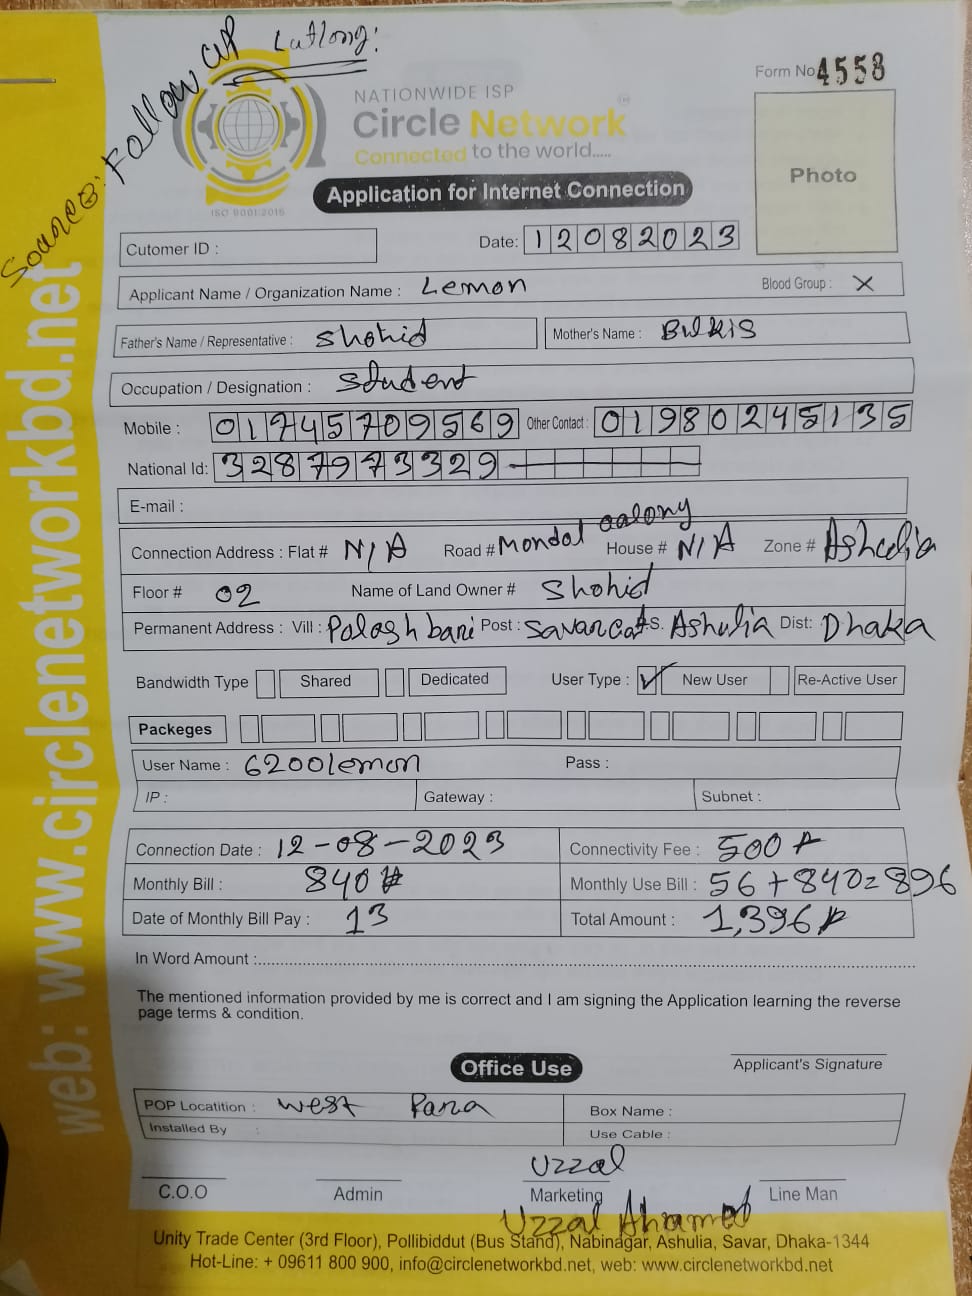 Source: Follow up Latlong:
Form No 4558
NATIONWIDE ISP
Circle Network
Connected to the world.....
ISO 9001:2015
Photo
Application for Internet Connection
Cutomer ID :
Date: 12082023
Applicant Name / Organization Name : Lemon Blood Group : X
Father's Name / Representative : Shohid Mother's Name : Bulkis
Occupation / Designation : Student
Mobile : 01745709569 Other Contact : 01980245135
National Id: 3287973329
E-mail :
Connection Address : Flat # N/A Road # Mondal colony House # N/A Zone # Ashulia
Floor # 02 Name of Land Owner # Shohid
Permanent Address : Vill : Palash bari Post : Savar Cant P.S. Ashulia Dist: Dhaka
Bandwidth Type Shared Dedicated User Type : ✓ New User Re-Active User
Packeges
User Name : 6200lemon Pass :
IP : Gateway : Subnet :
Connection Date : 12-08-2023 Connectivity Fee : 500
Monthly Bill : 840 Monthly Use Bill : 56+840=896
Date of Monthly Bill Pay : 13 Total Amount : 1,396
In Word Amount :
The mentioned information provided by me is correct and I am signing the Application learning the reverse
page terms & condition.
Applicant's Signature
Office Use
POP Locatition : West Para Box Name :
Installed By : Use Cable :
Uzzal
C.O.O Admin Marketing Line Man
Uzzal Ahamed
Unity Trade Center (3rd Floor), Pollibiddut (Bus Stand), Nabinagar, Ashulia, Savar, Dhaka-1344
Hot-Line: + 09611 800 900, info@circlenetworkbd.net, web: www.circlenetworkbd.net
web: www.circlenetworkbd.net